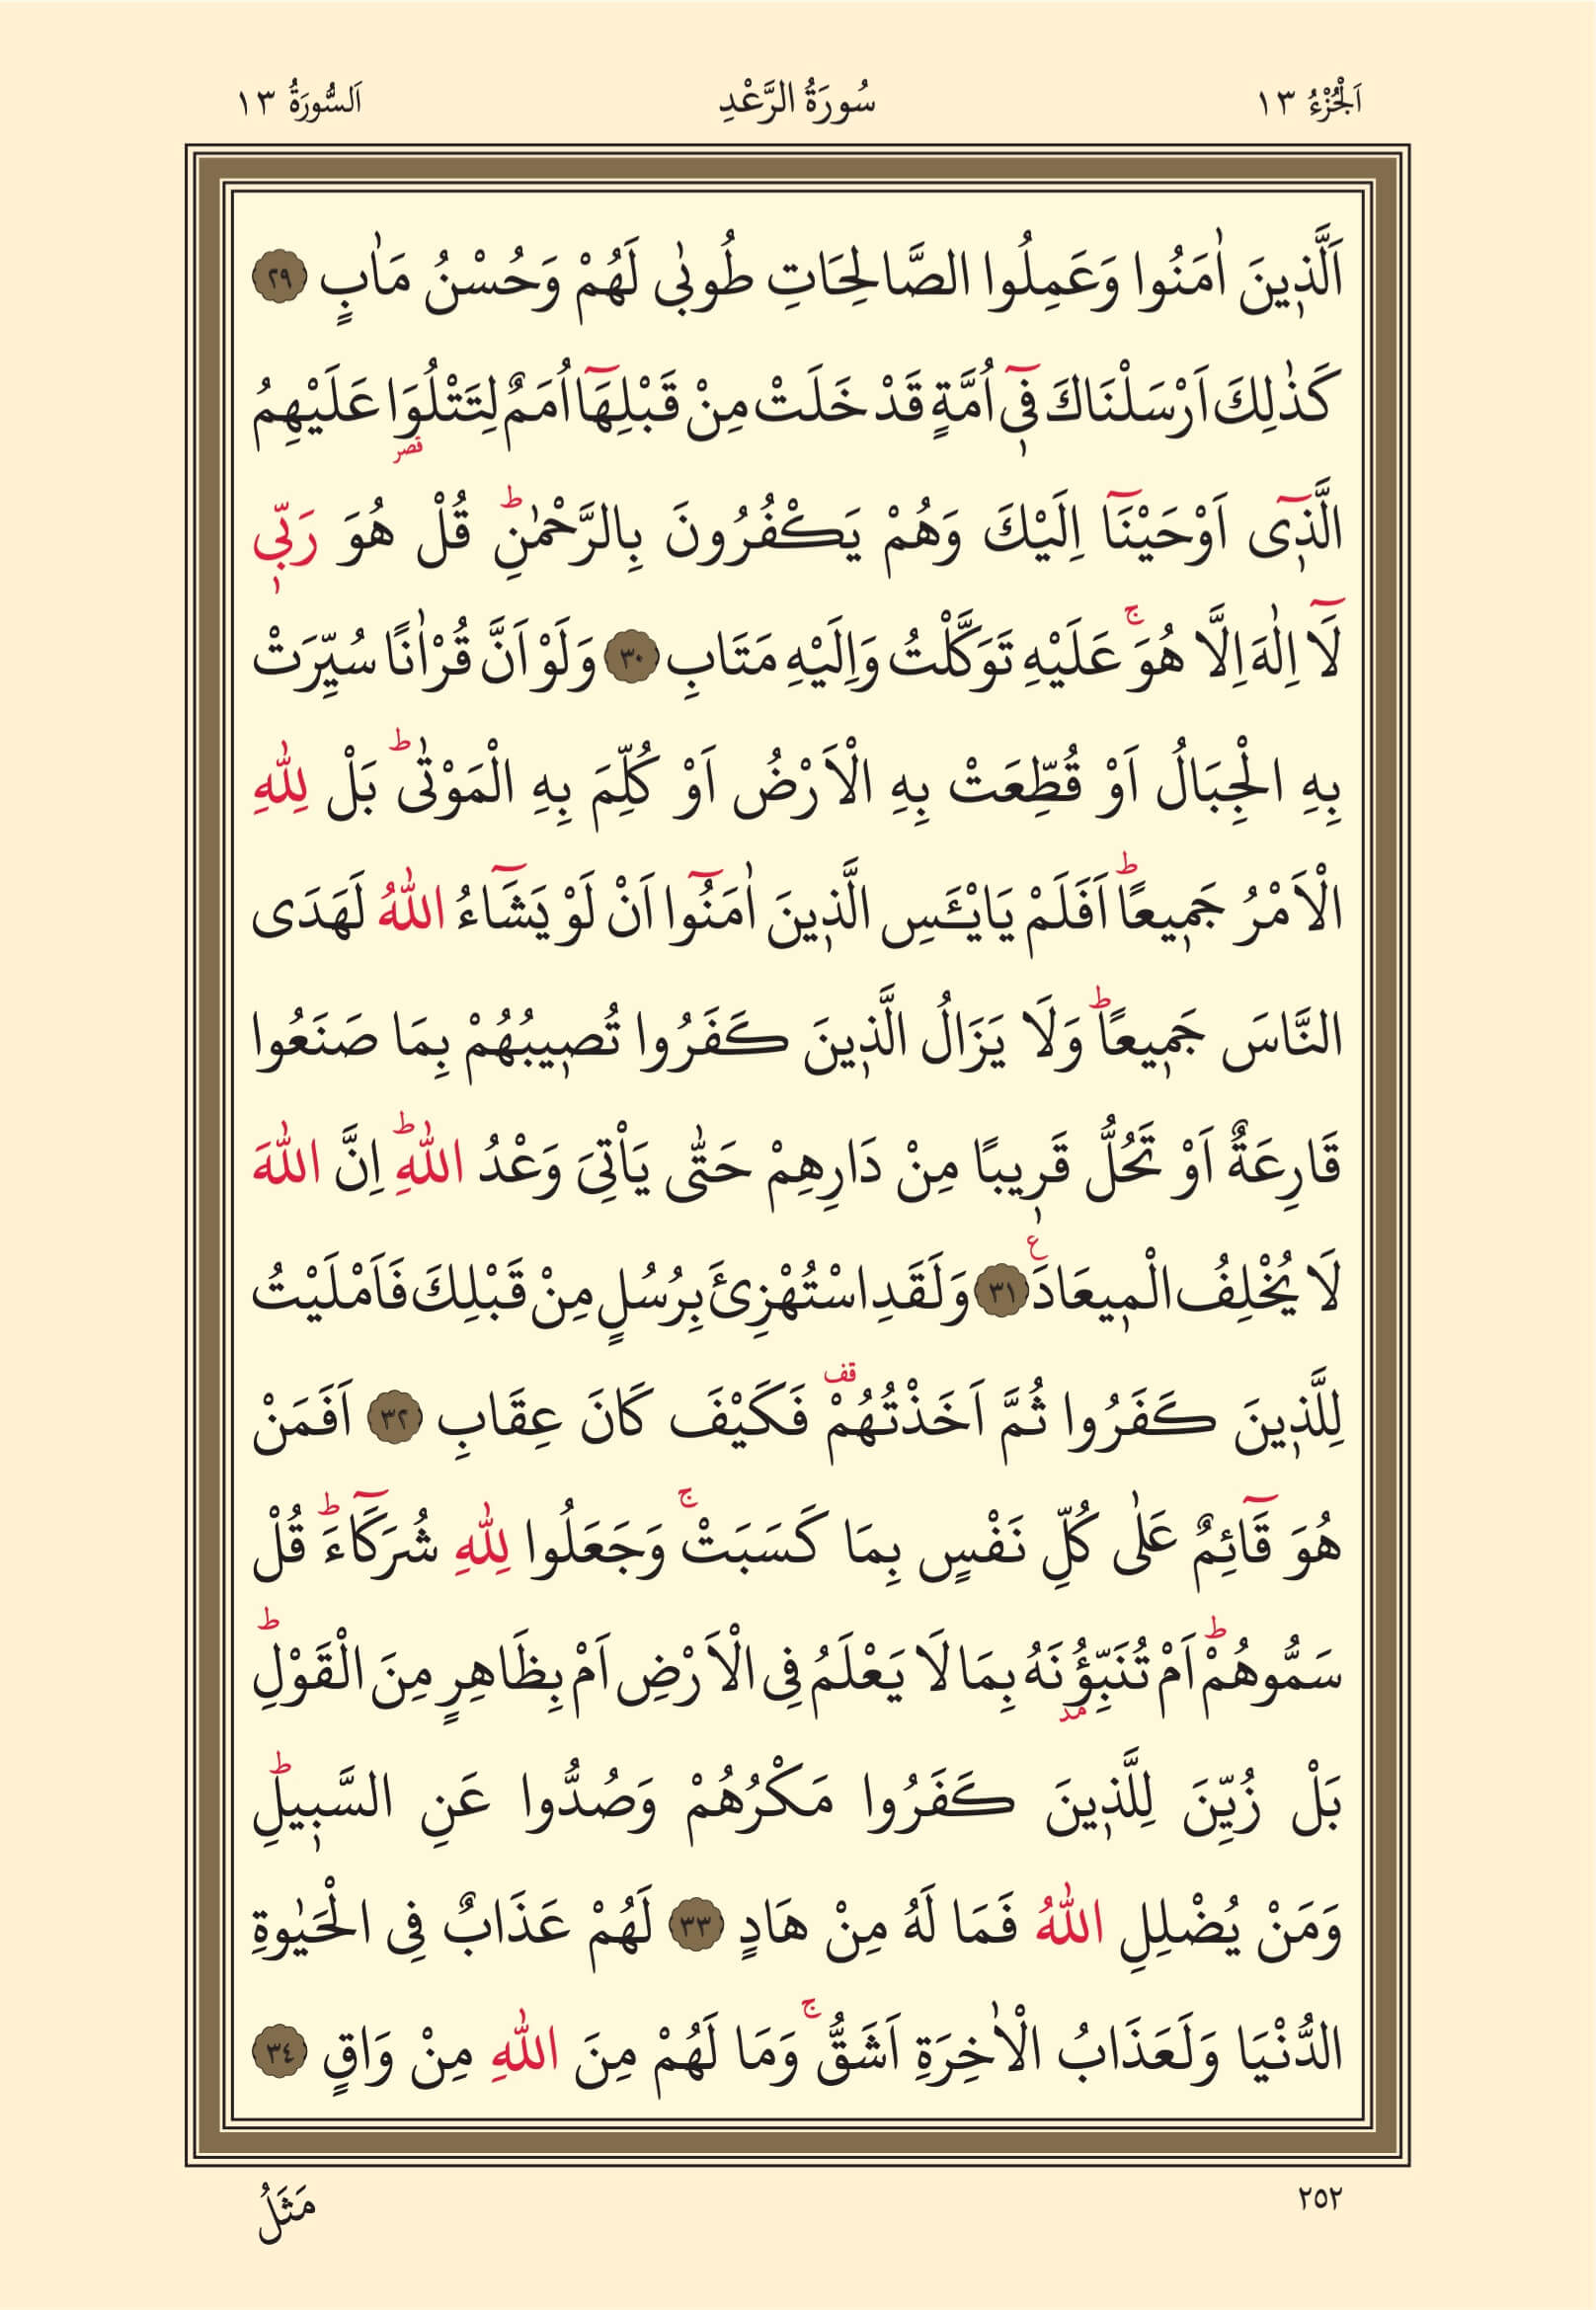 اَلْجُزْءُ ١٣ سُورَةُ الرَّعْدِ اَلسُّورَةُ ١٣
اَلَّذ۪ينَ اٰمَنُوا وَعَمِلُوا الصَّالِحَاتِ طُوبٰى لَهُمْ وَحُسْنُ مَاٰبٍ ٢٩
كَذٰلِكَ اَرْسَلْنَاكَ ف۪ٓى اُمَّةٍ قَدْ خَلَتْ مِنْ قَبْلِهَٓا اُمَمٌ لِتَتْلُوَا عَلَيْهِمُ
قصر
الَّذ۪ٓى اَوْحَيْنَٓا اِلَيْكَ وَهُمْ يَكْفُرُونَ بِالرَّحْمٰنِۜ قُلْ هُوَ رَبّ۪ى
لَٓا اِلٰهَ اِلَّا هُوَۚ عَلَيْهِ تَوَكَّلْتُ وَاِلَيْهِ مَتَابِ ٣٠ وَلَوْ اَنَّ قُرْاٰنًا سُيِّرَتْ
بِهِ الْجِبَالُ اَوْ قُطِّعَتْ بِهِ الْاَرْضُ اَوْ كُلِّمَ بِهِ الْمَوْتٰىۜ بَلْ لِلّٰهِ
الْاَمْرُ جَم۪يعًاۜ اَفَلَمْ يَايْـَٔسِ الَّذ۪ينَ اٰمَنُٓوا اَنْ لَوْ يَشَٓاءُ اللّٰهُ لَهَدَى
النَّاسَ جَم۪يعًاۜ وَلَا يَزَالُ الَّذ۪ينَ كَفَرُوا تُص۪يبُهُمْ بِمَا صَنَعُوا
قَارِعَةٌ اَوْ تَحُلُّ قَر۪يبًا مِنْ دَارِهِمْ حَتّٰى يَاْتِىَ وَعْدُ اللّٰهِۜ اِنَّ اللّٰهَ
لَا يُخْلِفُ الْم۪يعَادَ ع ٣١ وَلَقَدِ اسْتُهْزِئَ بِرُسُلٍ مِنْ قَبْلِكَ فَاَمْلَيْتُ
لِلَّذ۪ينَ كَفَرُوا ثُمَّ اَخَذْتُهُمْ قف فَكَيْفَ كَانَ عِقَابِ ٣٢ اَفَمَنْ
هُوَ قَٓائِمٌ عَلٰى كُلِّ نَفْسٍ بِمَا كَسَبَتْۚ وَجَعَلُوا لِلّٰهِ شُرَكَٓاءَۜ قُلْ
سَمُّوهُمْۜ اَمْ تُنَبِّؤُ۫نَهُ بِمَا لَا يَعْلَمُ فِى الْاَرْضِ اَمْ بِظَاهِرٍ مِنَ الْقَوْلِۜ
مد
بَلْ زُيِّنَ لِلَّذ۪ينَ كَفَرُوا مَكْرُهُمْ وَصُدُّوا عَنِ السَّب۪يلِۜ
وَمَنْ يُضْلِلِ اللّٰهُ فَمَا لَهُ مِنْ هَادٍ ٣٣ لَهُمْ عَذَابٌ فِى الْحَيٰوةِ
الدُّنْيَا وَلَعَذَابُ الْاٰخِرَةِ اَشَقُّۚ وَمَا لَهُمْ مِنَ اللّٰهِ مِنْ وَاقٍ ٣٤
٢٥٢ مَثَلُ